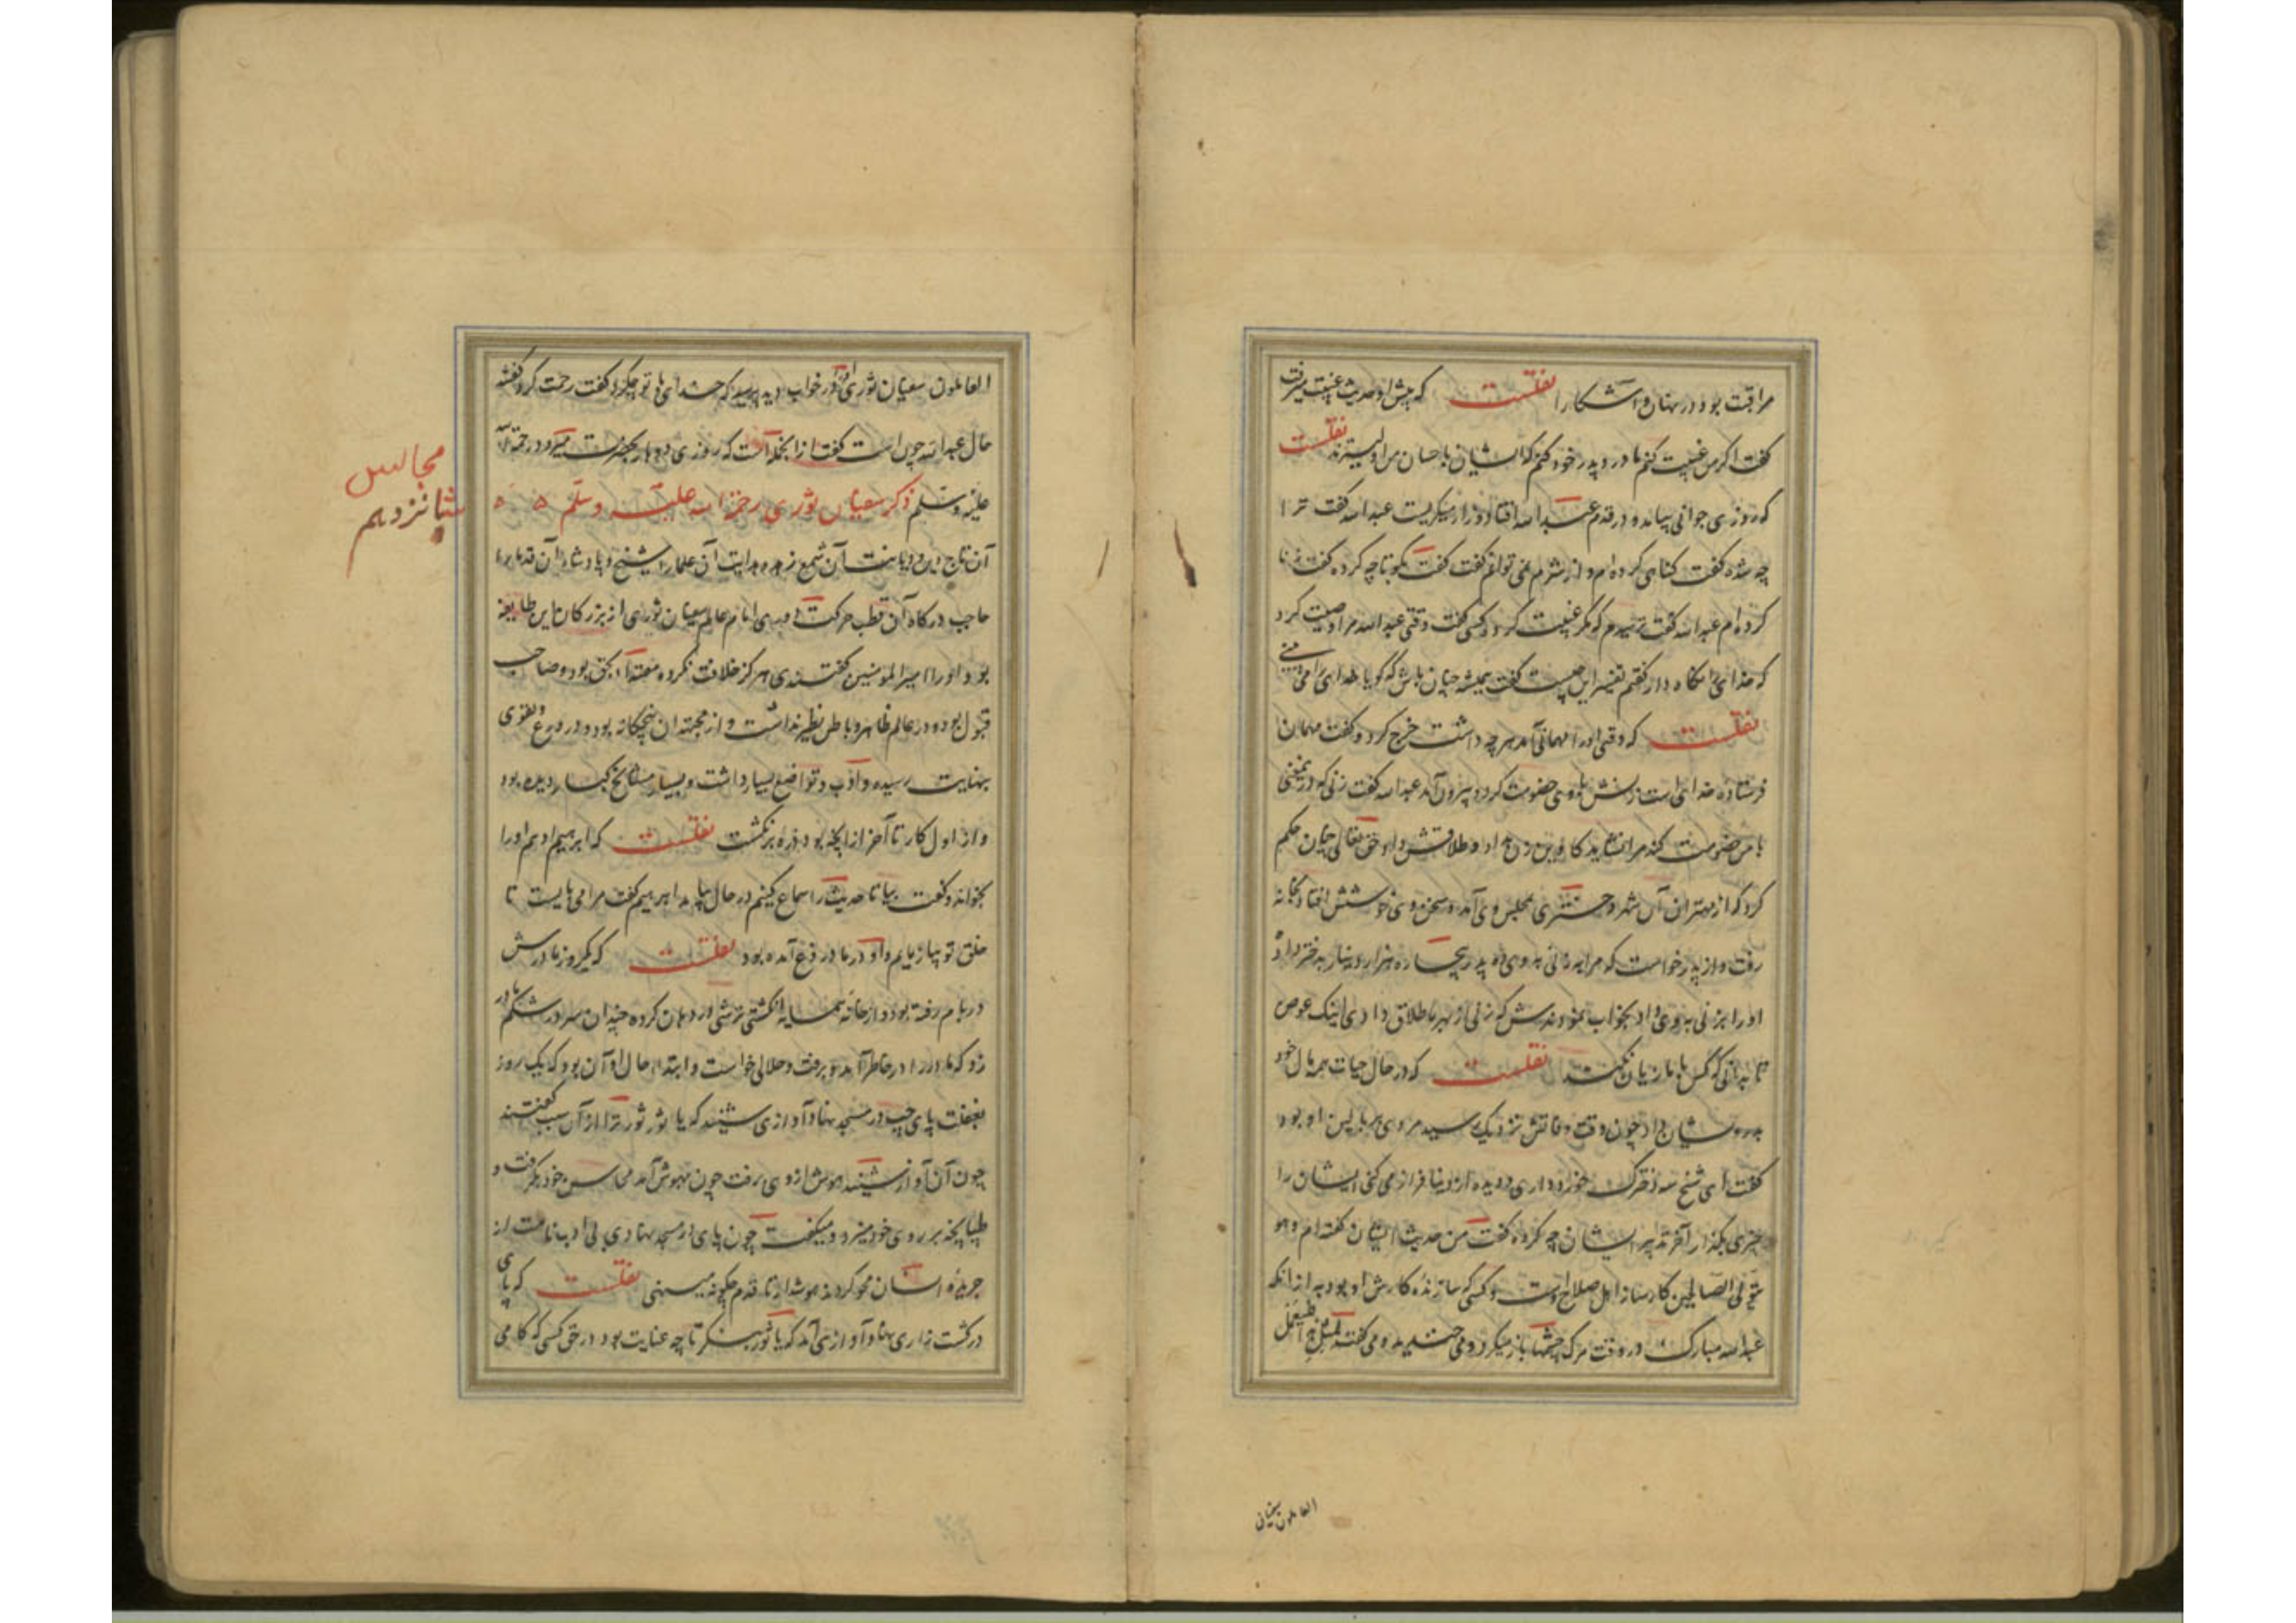 مراقبت بود در نهان و آشکارا نقلست که پیش او حدیث غیبت میرفت
گفت اگر من غیبت کنم مادر و پدر خود کنم که ایشان باحسان من اولیترند نقلست
که روزی جوانی بیامد و در قدم عبدالله افتاد و زار میگریست عبدالله گفت ترا
چه شده گفت گناهی کرده ام و از شرم نمی توانم گفت گفت بگو تا چه کرده گفت زنا
کرده ام عبدالله گفت ترسیدم که مگر غیبت کرده کسی گفت وقتی عبدالله مرا وصیت کرد
که خدای را نگاه دار گفتم تفسیر این چیست گفت همیشه چنان باش که گویا خدای را می بینی
نقلست که وقتی او را مهمانی آمد هر چه داشت خرج کرد و گفت مهمان
فرستاده خدای است زنش با وی خصومت کرد و بیرون آمد عبدالله گفت زنی که در معنی
با من خصومت کند مرا نشاید کاوین زن داد و طلاقش داد حق تعالی چنان حکم
کرد که از مهتران آن شهر دختری بمجلس وی آمد و سخن وی خوشش افتاد بخانه
رفت و از پدر خواست که مرا بزنی بدوی ده پدر پنجاه هزار دینار بدختر داد
او را بزنی بدوی داد بخواب نمودندش که زنی از بهر ما طلاق دادی اینک عوض
تا بدانی که کس با ما زیان نکند نقلست که در حال حیات همه مال خود
بدرویشان داد چون وقت وفاتش نزدیک رسید مردی بر بالین او بود
گفت ای شیخ سه دخترک خرد داری و دیده از دنیا فراز می کنی ایشان را
چیزی بگذار آخر تدبیر ایشان چه کرده گفت من حدیث ایشان گفته ام و هو
یتولی الصالحین کارساز اهل صلاح اوست و کسی که سازنده کارش او بود به از آنکه
عبدالله مبارک در وقت مرگ چشمها باز میکرد و می خندید و می گفت لمثل هذا فلیعمل
العاملون سفیان
العاملون سفیان ثوری را در خواب دید پرسید که خدای با تو چه کرد گفت رحمت کرد گفتند
حال عبدالله چون است گفت از آنجمله است که روزی دو بار بحضرت میرود رحمة الله
علیه و سلم ذکر سفیان ثوری رحمة الله علیه وسلم
مجالس
شانزدهم
آن تاج دین و دیانت آن شمع زهد و هدایت آن علما را شیخ و پادشاه آن قدما را
حاجب درگاه آن قطب حرکت امام عالم سفیان ثوری از بزرگان این طایفه
بود و او را امیرالمومنین گفتندی هرگز خلافت نکرده مقتدا بحق بود و صاحب
قبول بوده در عالم ظاهر و باطن نظیر نداشت و از مجتهدان پنجگانه بود و در ورع و تقوی
بنهایت رسیده و ادب و تواضع بسیار داشت و بسیار مشایخ کبار دیده بود
و از اول کار تا آخر از آنچه بود ذره برنگشت نقلست که ابرهیم ادهم او را
بخواند و گفت بیا تا حدیث را سماع کنیم در حال بیامد ابرهیم گفت مرا می بایست تا
خلق تو بیازمایم و او در مادر ورع آمده بود نقلست که یکروز مادرش
در بام رفته بود و از خانه همسایه انگشتی ترشی در دهان کرده چندان سر در شکم مادر
زد که مادر را در خاطر آمد و برفت و حلالی خواست و ابتداء حال او آن بود که یک روز
بغفلت پای چپ در مسجد نهاد آوازی شنید که یا ثور ثور ترا از آن سبب گفتند
چون آن آواز شنید هوش از وی برفت چون بهوش آمد محاسن خود بگرفت و
طپانچه بر روی خود میزد و میگفت چون پای در مسجد نهادی بی ادب نامت از
جریده انسان محو کردند هوش دار تا قدم چگونه می نهی نقلست که پای
در کشت زاری نهاد آوازی آمد که یا ثور بنگر تا چه عنایت بود در حق کسی که گامی